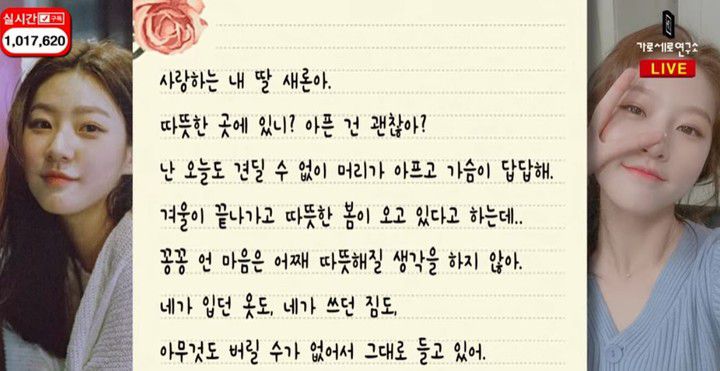 실시간 구독
1,017,620
가로세로연구소
LIVE
사랑하는 내 딸 새론아.
따뜻한 곳에 있니? 아픈 건 괜찮아?
난 오늘도 견딜 수 없이 머리가 아프고 가슴이 답답해.
겨울이 끝나가고 따뜻한 봄이 오고 있다고 하는데..
꽁꽁 언 마음은 어째 따뜻해질 생각을 하지 않아.
네가 입던 옷도, 네가 쓰던 짐도,
아무것도 버릴 수가 없어서 그대로 들고 있어.